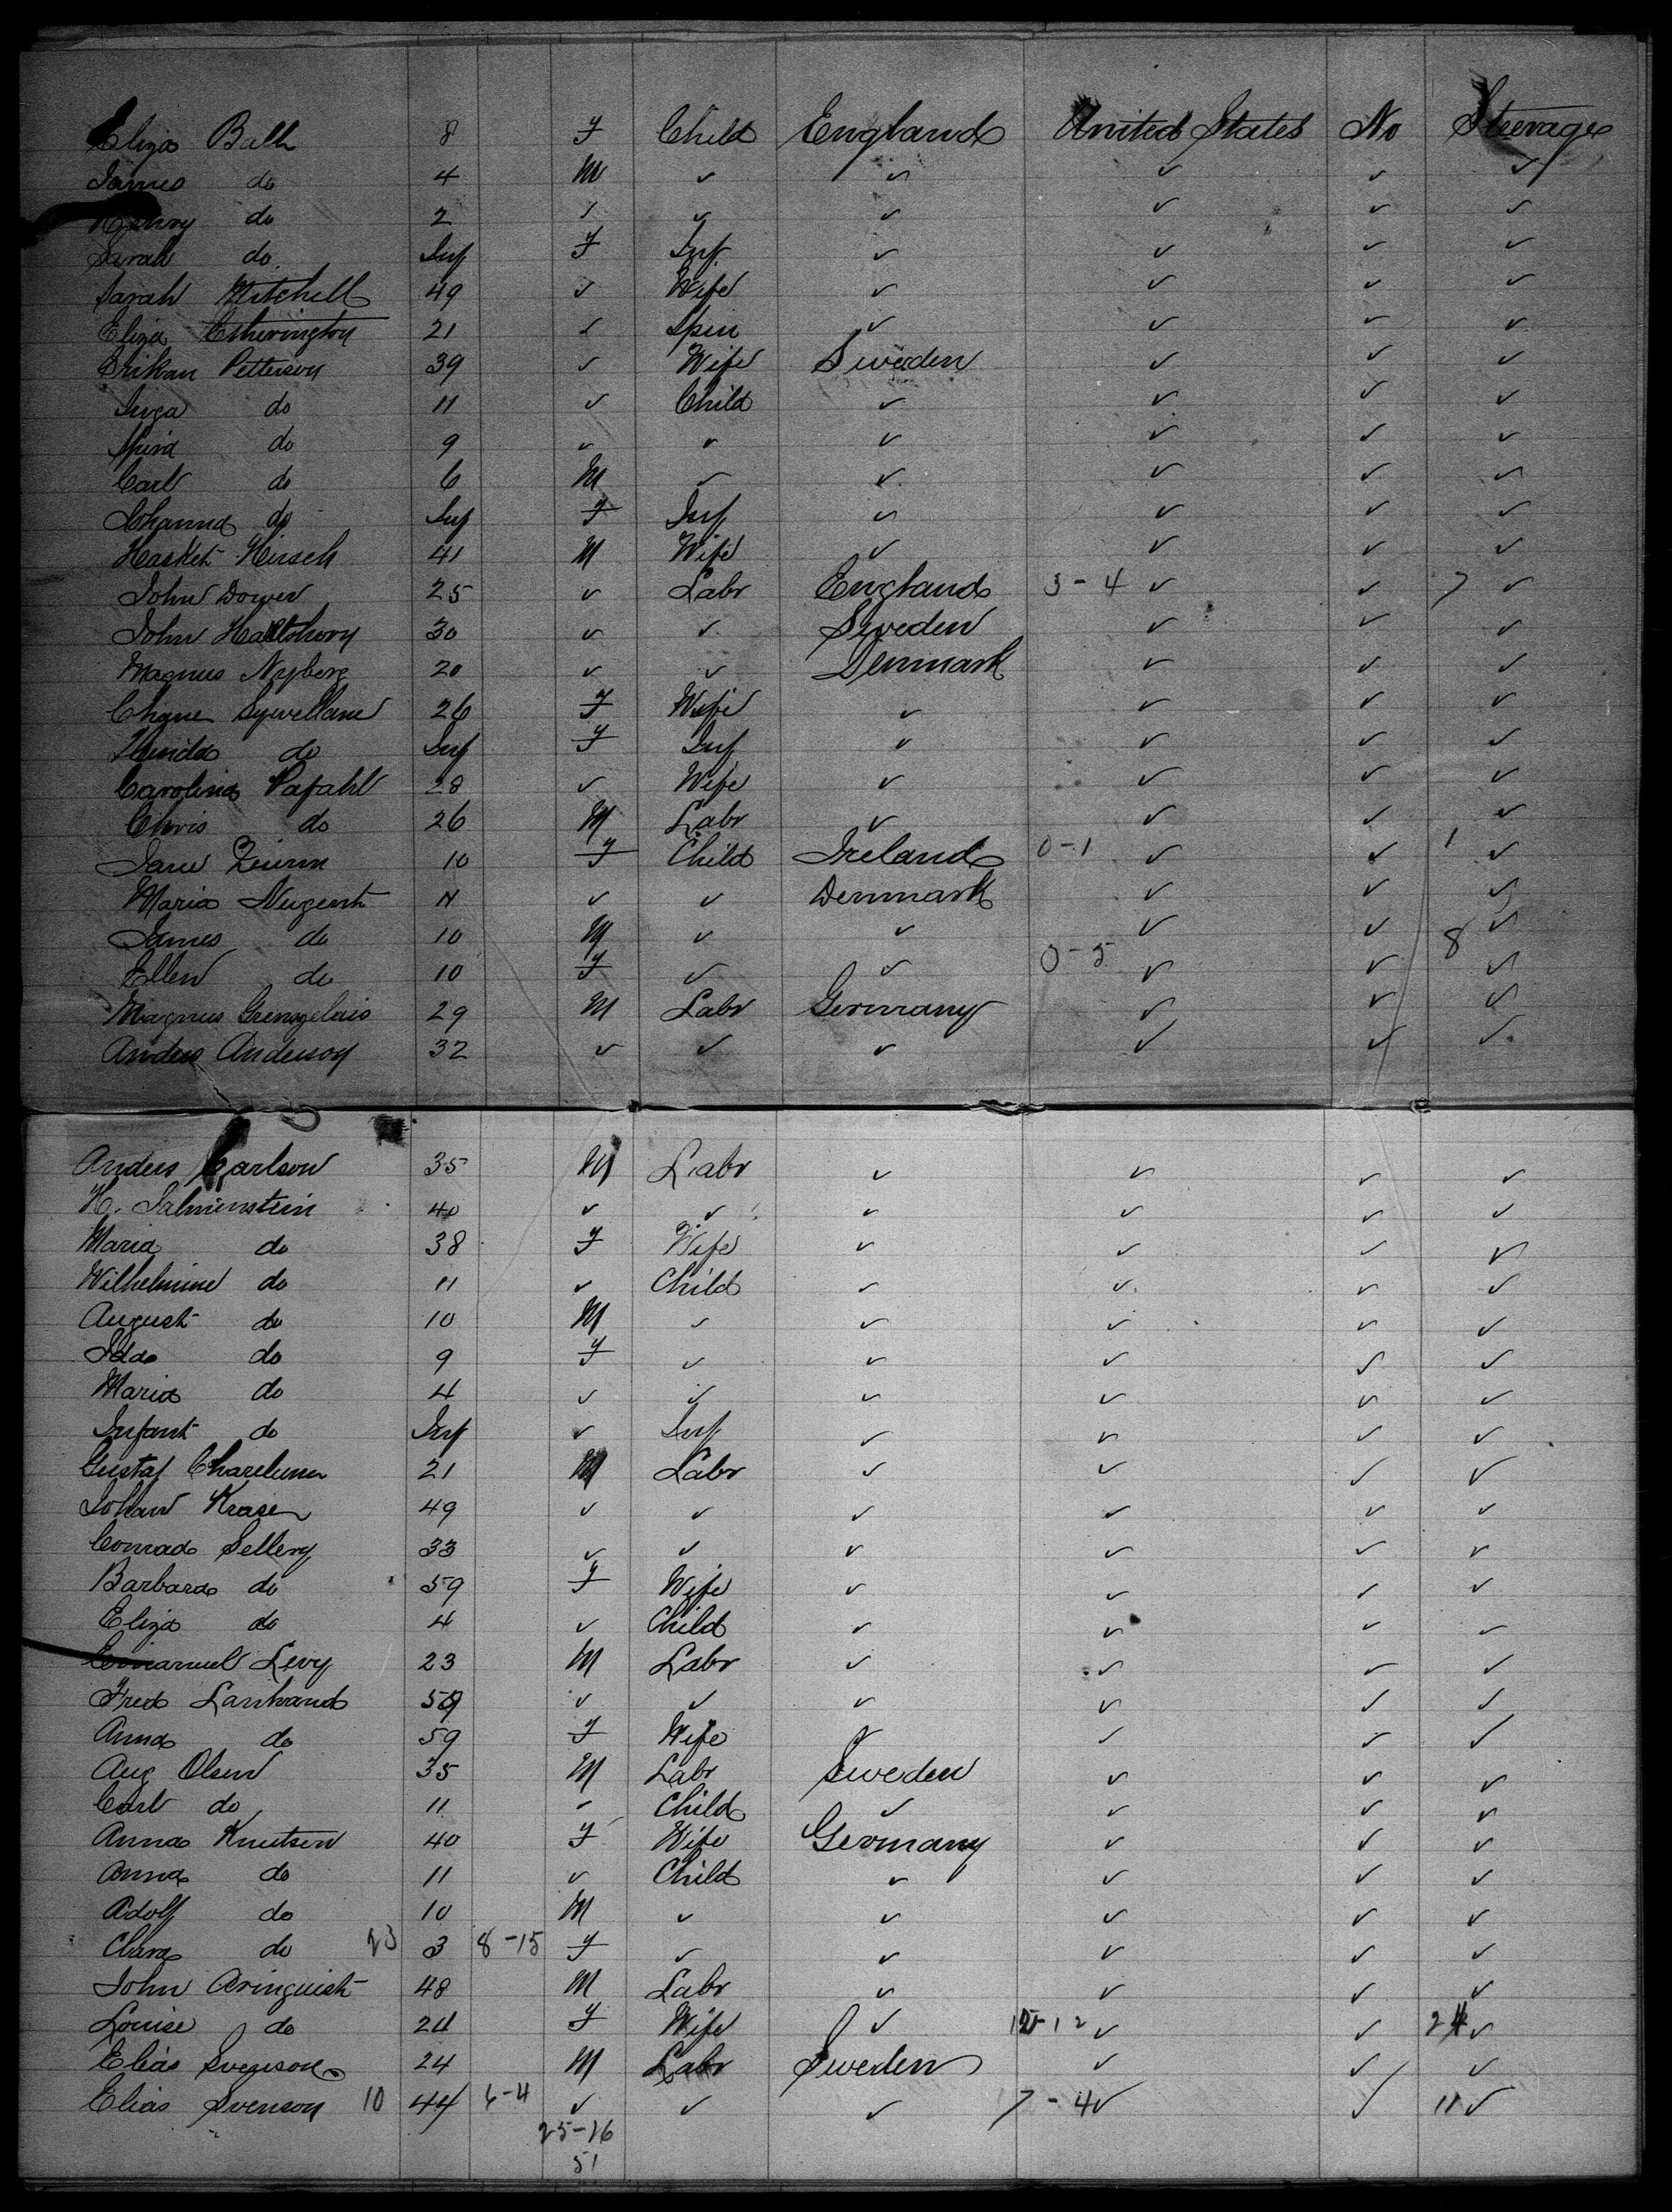 Eliza Ball 8 F Child England United States No Steerage
James do 4 M ✓ ✓ ✓ ✓ ✓
Henry do 2 ✓ ✓ ✓ ✓ ✓ ✓
Sarah do Inf F Inf ✓ ✓ ✓ ✓
Sarah Mitchell 49 ✓ Wife ✓ ✓ ✓ ✓
Eliza Etherington 21 ✓ Spin ✓ ✓ ✓ ✓
Erikan Petterson 39 ✓ Wife Sweden ✓ ✓ ✓
Inga do 11 ✓ Child ✓ ✓ ✓ ✓
do 9 ✓ ✓ ✓ ✓ ✓ ✓
Carl do 6 M ✓ ✓ ✓ ✓ ✓
Johanna do Inf F Inf ✓ ✓ ✓ ✓
Hasket Hirsch 41 M Wife ✓ ✓ ✓ ✓
John Dower 25 ✓ Labr England 3-4 ✓ ✓ 7 ✓
John 30 ✓ ✓ Sweden ✓ ✓ ✓
Magnus Nyberg 20 ✓ ✓ Denmark ✓ ✓ ✓
26 F Wife ✓ ✓ ✓ ✓
do Inf F Inf ✓ ✓ ✓ ✓
Carolina Pafahl 28 ✓ Wife ✓ ✓ ✓ ✓
Chris do 26 M Labr ✓ ✓ ✓ ✓
Jane 10 F Child Ireland 0-1 ✓ ✓ 1 ✓
Maria Nugent 11 ✓ ✓ Denmark ✓ ✓ ✓
James do 10 M ✓ ✓ ✓ ✓ ✓
Ellen do 10 F ✓ ✓ 0-5 ✓ ✓ 8 ✓
Magnus 29 M Labr Germany ✓ ✓ ✓
Anders Anderson 32 ✓ ✓ ✓ ✓ ✓ ✓
Anders Carlson 35 M Labr ✓ ✓ ✓ ✓
H. Salmenstein 40 ✓ ✓ ✓ ✓ ✓ ✓
Maria do 38 F Wife ✓ ✓ ✓ ✓
Wilhelmine do 11 ✓ Child ✓ ✓ ✓ ✓
August do 10 M ✓ ✓ ✓ ✓ ✓
Ida do 9 F ✓ ✓ ✓ ✓ ✓
Maria do 4 ✓ ✓ ✓ ✓ ✓ ✓
Infant do Inf ✓ Inf ✓ ✓ ✓ ✓
Gustaf 21 M Labr ✓ ✓ ✓ ✓
Johan Krasen 49 ✓ ✓ ✓ ✓ ✓ ✓
Conrad Sellery 33 ✓ ✓ ✓ ✓ ✓ ✓
Barbara do 59 F Wife ✓ ✓ ✓ ✓
Eliza do 4 ✓ Child ✓ ✓ ✓ ✓
Emanuel Levy 23 M Labr ✓ ✓ ✓ ✓
Fred Lanhand 59 ✓ ✓ ✓ ✓ ✓ ✓
Anna do 59 F Wife ✓ ✓ ✓ ✓
Aug Olsen 35 M Labr Sweden ✓ ✓ ✓
Carl do 11 ✓ Child ✓ ✓ ✓ ✓
Anna Knutsen 40 F Wife Germany ✓ ✓ ✓
Anna do 11 ✓ Child ✓ ✓ ✓ ✓
Adolf do 10 M ✓ ✓ ✓ ✓ ✓
Clara do 23 3 8-15 F ✓ ✓ ✓ ✓ ✓
John Aringuist 48 M Labr ✓ ✓ ✓ ✓
Louise do 24 F Wife ✓ 12 ✓ ✓ 24 ✓
Elias Svenson 24 M Labr Sweden ✓ ✓ ✓
Elias Svenson 10 44 6-4 ✓ ✓ ✓ 7-4 ✓ ✓ 11 ✓
25-26
51